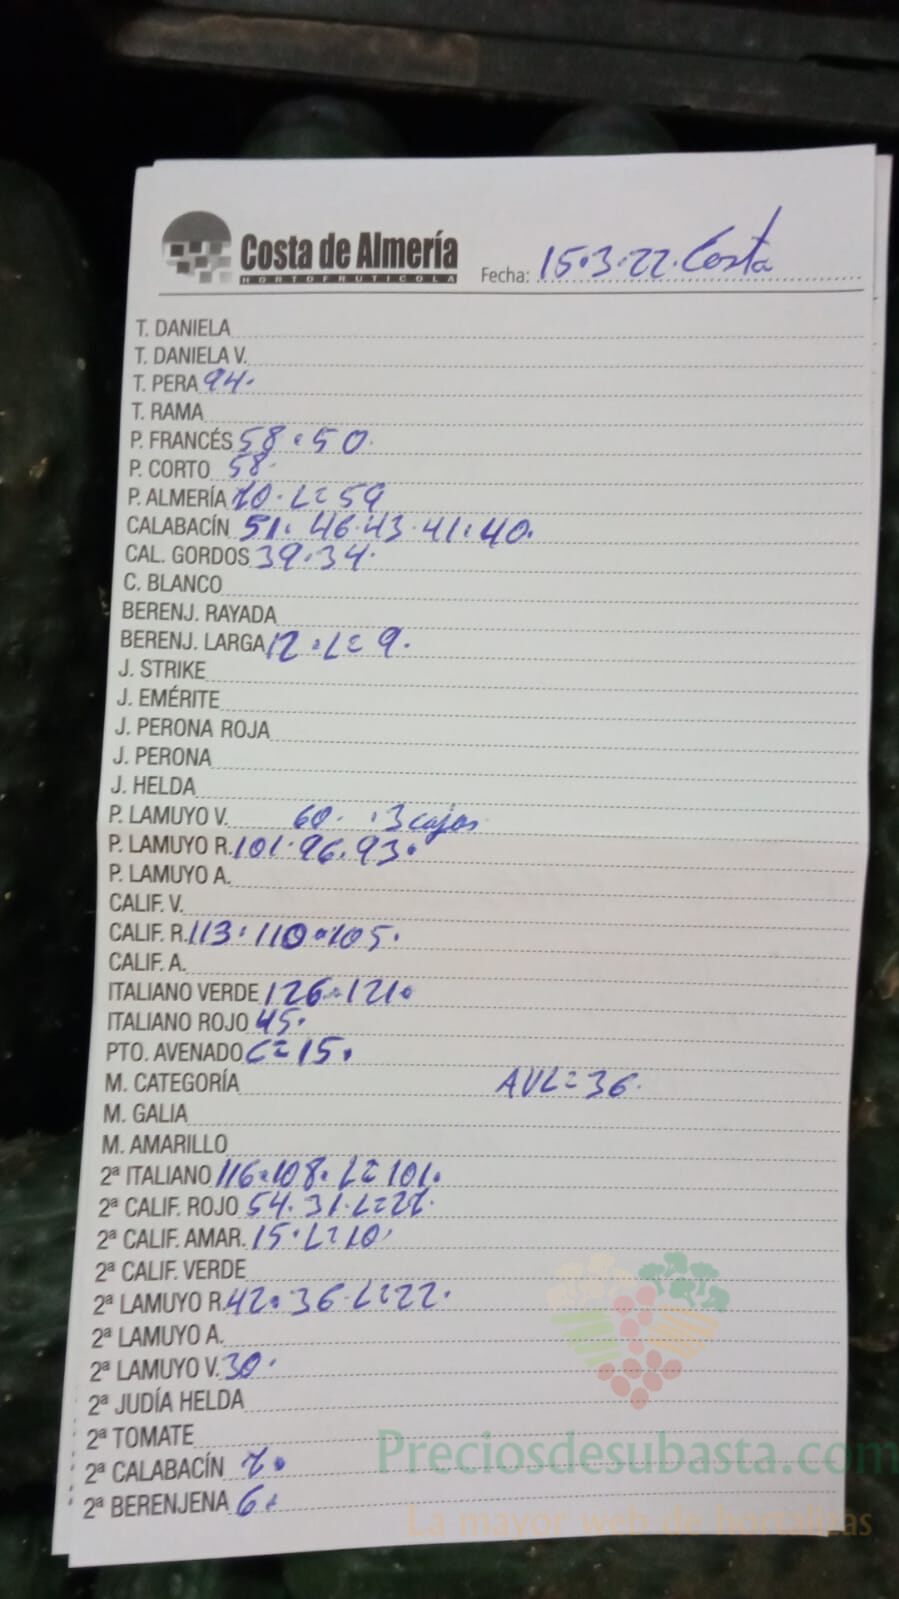 Costa de Almería
HORTOFRUTICOLA
Fecha: 15.3.22. Costa
T. DANIELA
T. DANIELA V.
T. PERA 94.
T. RAMA
P. FRANCÉS 58.50.
P. CORTO 58.
P. ALMERÍA 70. L=59
CALABACÍN 51. 46.43.41.40.
CAL. GORDOS 39.34.
C. BLANCO
BERENJ. RAYADA
BERENJ. LARGA 12. L=9.
J. STRIKE
J. EMÉRITE
J. PERONA ROJA
J. PERONA
J. HELDA
P. LAMUYO V. 60. .3 cajas
P. LAMUYO R. 101.96.93.
P. LAMUYO A.
CALIF. V.
CALIF. R. 113.110.105.
CALIF. A.
ITALIANO VERDE 126.121.
ITALIANO ROJO 45.
PTO. AVENADO C=15.
M. CATEGORÍA AVL=36.
M. GALIA
M. AMARILLO
2ª ITALIANO 116.108. L=101.
2ª CALIF. ROJO 54.31. L=22.
2ª CALIF. AMAR. 15. L=10.
2ª CALIF. VERDE
2ª LAMUYO R. 42.36. L=22.
2ª LAMUYO A.
2ª LAMUYO V. 30.
2ª JUDÍA HELDA
2ª TOMATE
2ª CALABACÍN 7.
2ª BERENJENA 6.
Preciosdesubasta.com
La mayor web de hortalizas